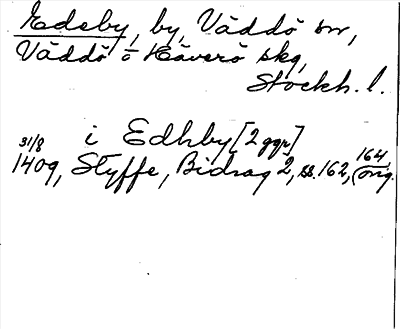 Edeby, by, Väddö sn,
Väddö o Häverö skg,
Stockh. l.
i Edhby [2 ggr]
31/8
1409, Styffe, Bidrag 2, ss. 162, 164, (orig.